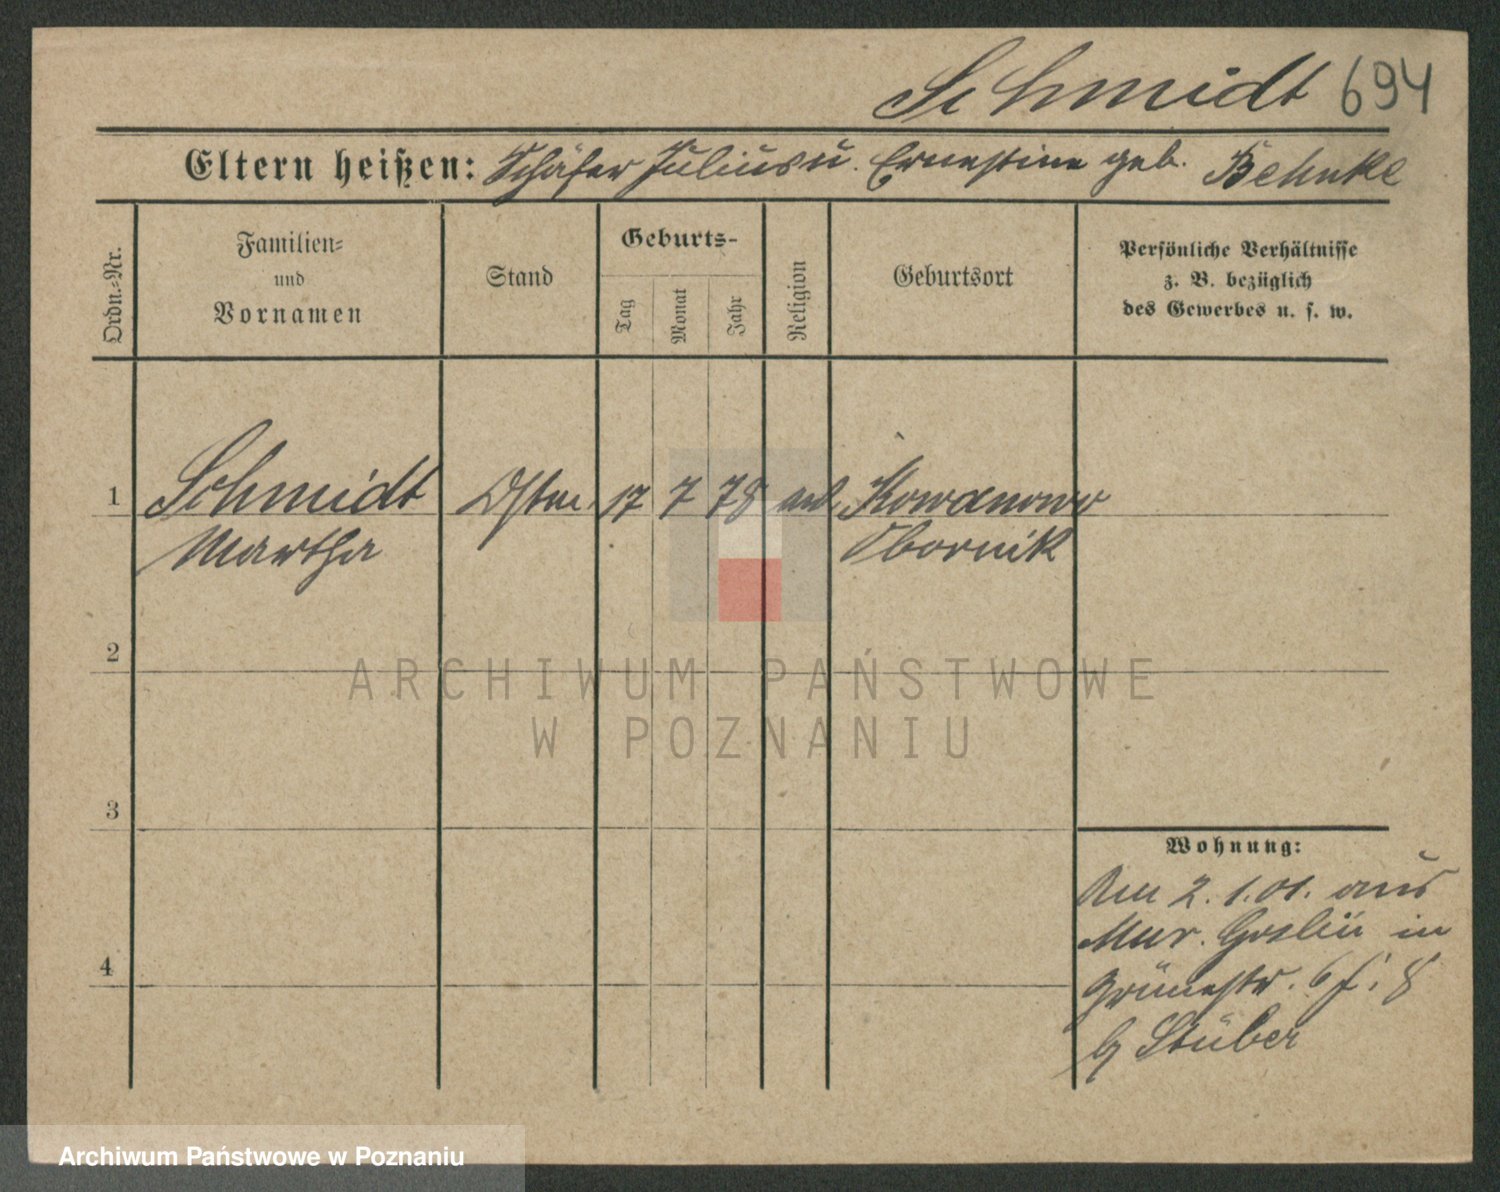 Schmidt 694
Eltern heißen: Schäfer Julius u. Ernestine geb. Behnke
Ordn.-Nr.
Familien-
und
Vornamen
Stand
Geburts-
Tag
Monat
Jahr
Religion
Geburtsort
Persönliche Verhältnisse
z. B. bezüglich
des Gewerbes u. s. w.
1 Schmidt 17 7 78 Kowanowo
Martha Obornik
2
ARCHIWUM PAŃSTWOWE
W POZNANIU
3
Wohnung:
Am 2.1.01. aus
Mur. Goslin in
4
Grünestr. 6
Stüber
Archiwum Państwowe w Poznaniu